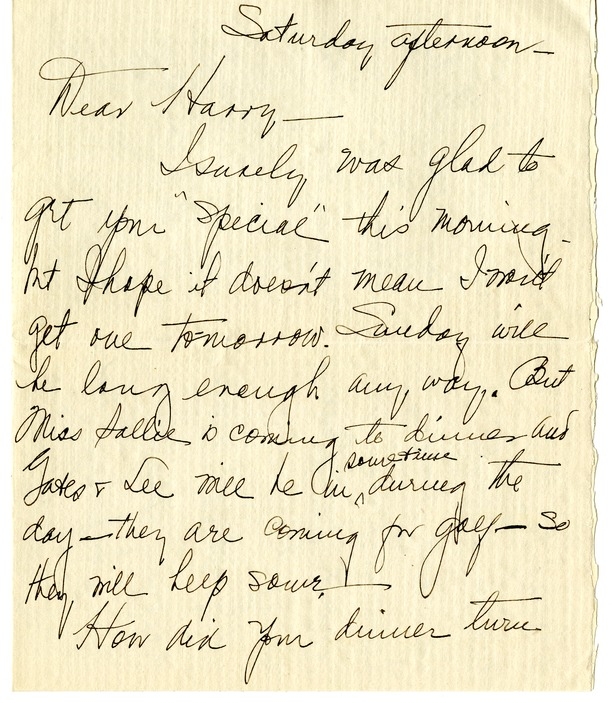 Saturday afternoon—
Dear Harry—
I surely was glad to
get your "special" this morning-
but I hope it doesn't mean I won't
get one tomorrow. Sunday will
be long enough any way. But
Miss Sallie is coming to dinner and
sometime
Gates & Lee will be in, during the
day—they are coming for golf—so
they will help some.
How did your dinner turn